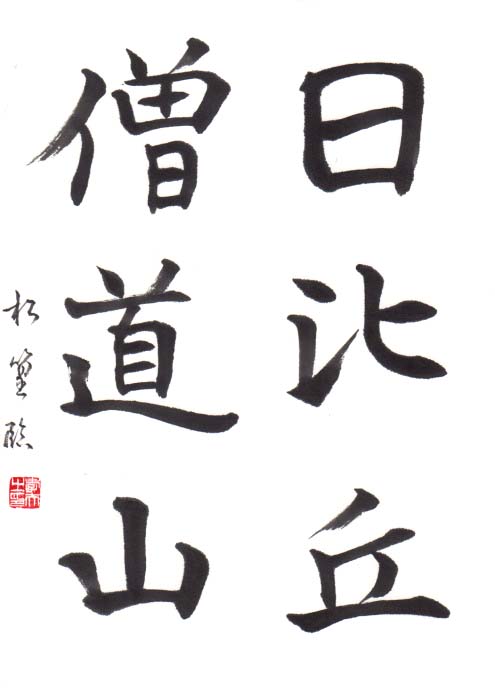 日比丘
僧道山
松篁臨